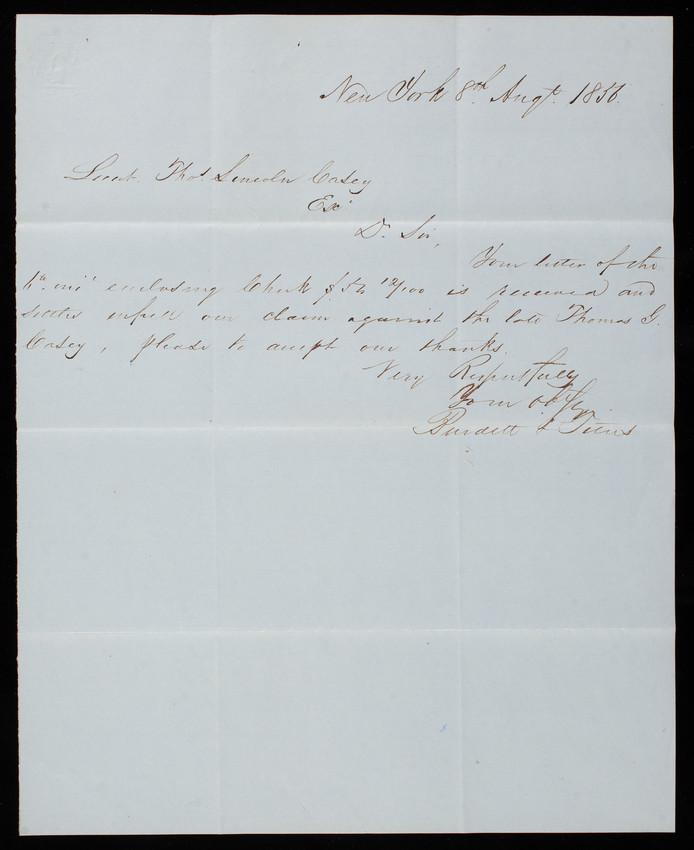 New York 8th Augt. 1856.
Lieut. Thos Lincoln Casey
Ex
Dr Sir,
Your letter of the
inst enclosing Check $ 12/100 is received and
settles in full our claim against the late Thomas G.
Casey, please to accept our thanks.
Very Respectfully
Your
Burdett &